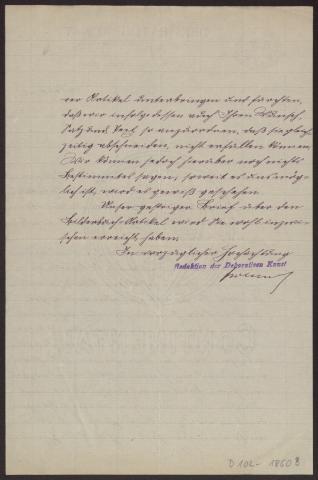 rer Artikel unterbringen und fürchten,
daß wir infolgedessen auch Ihren Wunsch,
Satz und Text so anzuordnen, daß sie gleich-
zeitig abschneiden, nicht erfüllen können.
Wir können jedoch hierüber noch nichts
Bestimmtes sagen, soweit es uns mög-
lich ist, wird es gewiß geschehen.
Unser gestriger Brief über den
Bilderbuch-Artikel wird Sie wohl inzwi-
schen erreicht haben.
In vorzüglicher Hochachtung
Redaktion der Dekorativen Kunst
D 102-1860 B